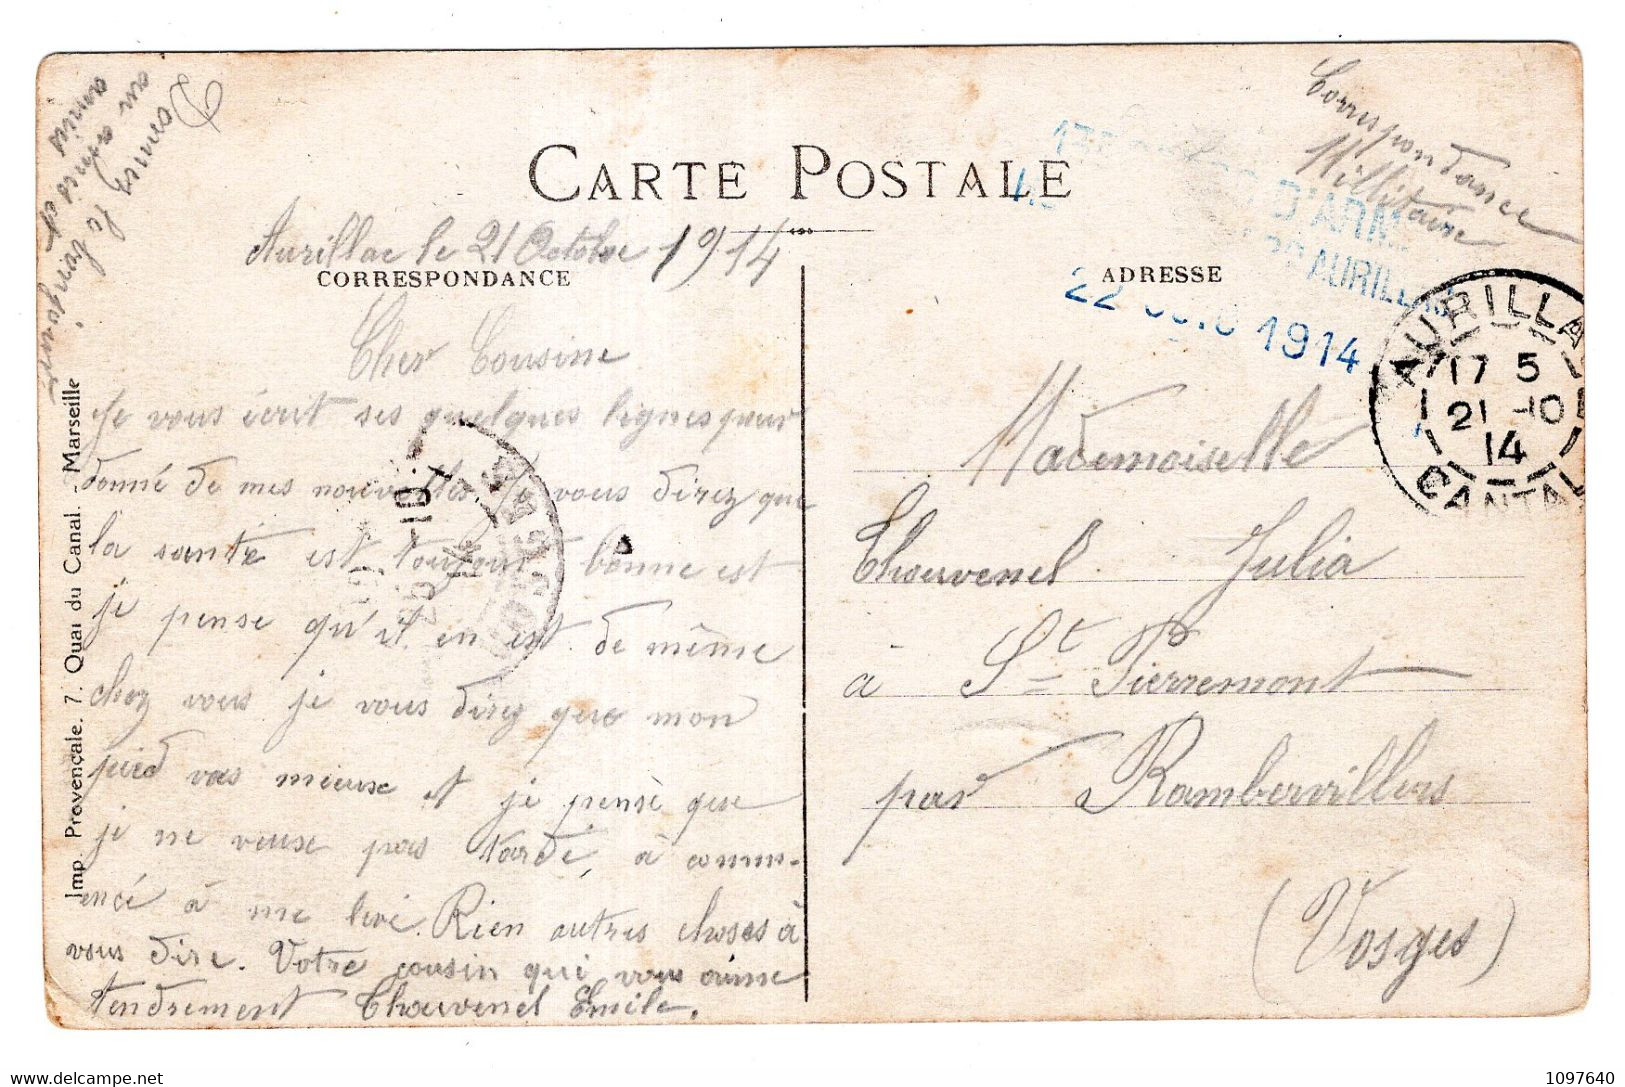 Correspondance
Millitaire
CARTE POSTALE
D'ARM
AURILLAC
22 1914
AURILLAC
17 5
21 -10
14
CANTAL
Donnez le bonjour
au
amies
Aurillac le 21 Octobre 1914
CORRESPONDANCE
Cher Cousine
Je vous écrit ses quelques lignes pour
donné de mes nouvelles. Je vous direz que
la santé est toujours bonne est
je pense qu'il en est de même
chez vous je vous direz que mon
pied vas mieux et je pense que
je ne veuse pas tardé, à comm-
encé à me levé. Rien autres choses à
vous dire. Votre cousin qui vous aime
tendrement Thouvenel Emile.
-10
14
Imp. Provençale. 7. Quai du Canal. - Marseille
ADRESSE
Mademoiselle
Thouvenel Julia
à St Pierremont
par Rambervillers
(Vosges)
delcampe.net
1097640